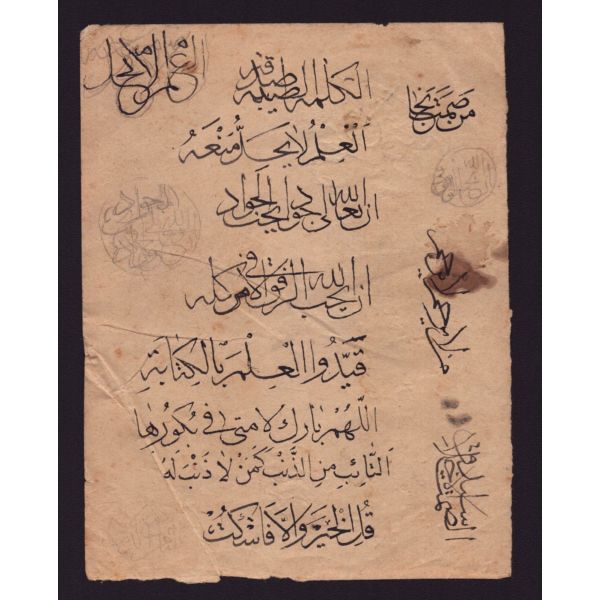 الكلمة الطيبة صدقة
العلم لا يحل منعه
ان الله تعالى جواد يحب الجواد
ان الله يحب الرفق في الامر كله
قَيِّدُوا الْعِلْمَ بِالْكِتَابَةِ
اللهم بارك لامتى فى بكورها
التائب من الذنب كمن لا ذنب له
قل الخير والا فاسكت
من صمت نجا
من لا يرحم لا يرحم